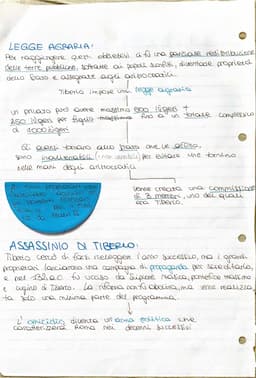 LEGGE AGRARIA:
Per raggiungere questi obbiettivi ci fu una parziale redistribuzione
delle terre pubbliche, sottratte ai popoli sconfitti, diventate proprietà
dello Stato e assegnate agli aristocratici.
Tiberio impose una legge agraria
un privato può avere massimo 500 iugeri +
250 iugeri per figlio fino a un totale complessivo
di 1000 iugeri
Gli tornano allo Stato che le
sono inalienabili (non vendibili) per evitare che tornino
nelle mani degli aristocratici
Venne creata una commissione
di 3 membri, uno dei quali
era Tiberio.
ASSASSINIO DI TIBERIO:
Tiberio cercò di farsi rieleggere l'anno successivo, ma i grandi
proprietari lanciarono una campagna di propaganda per screditarlo,
e nel 132 a.C. fu ucciso da Scipione Nasica, pontefice massimo
e cugino di Tiberio. La riforma non fu abolita, ma venne realizza-
ta solo una minima parte del programma.
L'omicidio diventa un'arma politica che
caratterizzerà Roma nei decenni successivi